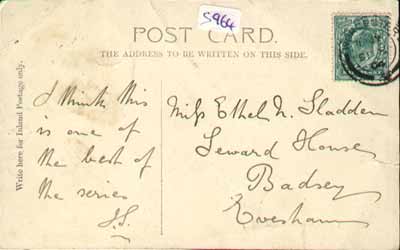 S964
POST CARD.
THE ADDRESS TO BE WRITTEN ON THIS SIDE.
Write here for Inland Postage only.
I think this
is one of
the best of
the series
J.S.
Miss Ethel N. Sladden
Seward House
Badsey
Evesham